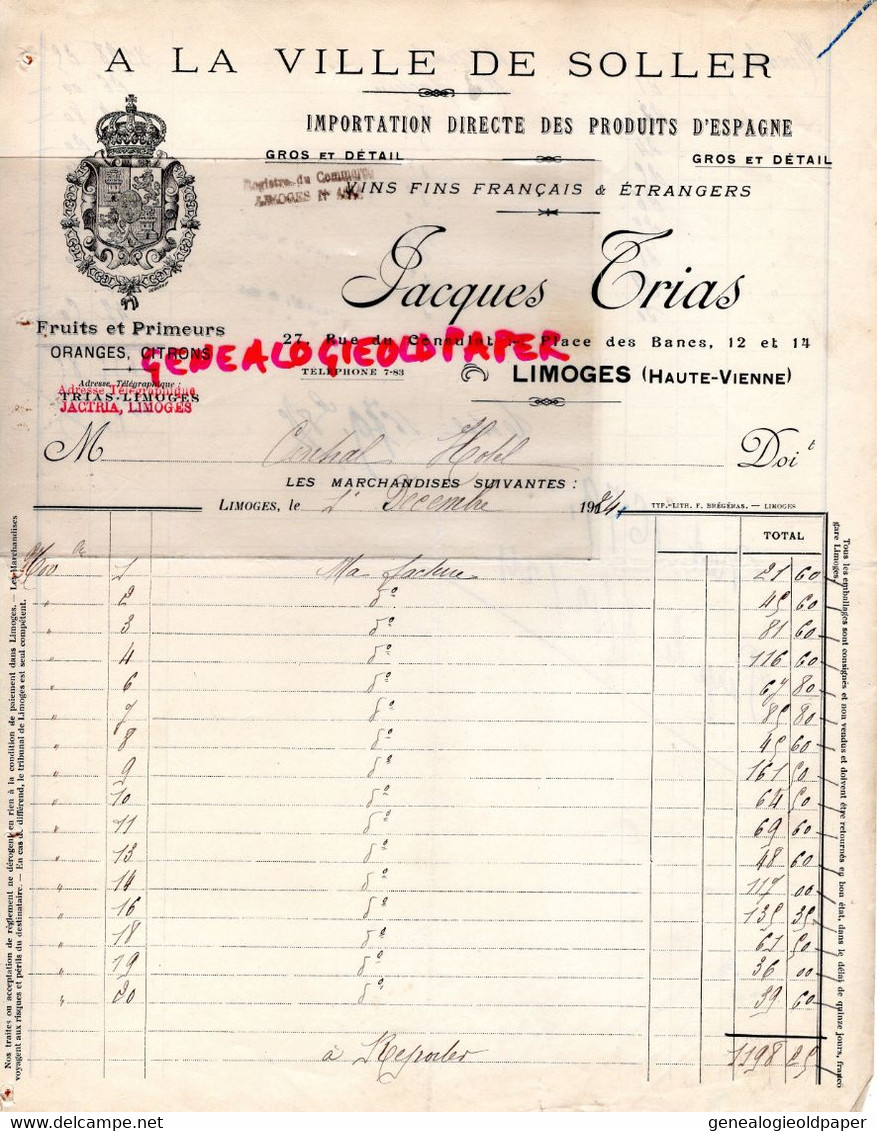 A LA VILLE DE SOLLER
IMPORTATION DIRECTE DES PRODUITS D'ESPAGNE
GROS ET DÉTAIL GROS ET DÉTAIL
Registre du Commerce
LIMOGES Nº
VINS FINS FRANÇAIS & ÉTRANGERS
Jacques Trias
Fruits et Primeurs
ORANGES, CITRONS
27, Rue du Consulat - Place des Bancs, 12 et 14
GENEALOGIEOLDPAPER
TÉLÉPHONE 7-83
LIMOGES (HAUTE-VIENNE)
Adresse Télégraphique :
TRIAS-LIMOGES
Adresse Télégraphique
JACTRIA, LIMOGES
M Central Hotel Doit
LES MARCHANDISES SUIVANTES :
LIMOGES, le 1er Decembre 1924
TYP.-LITH. F. BRÉGÉRAS. — LIMOGES
TOTAL
1 Ma facture 21 60
" 2 dº 45 60
" 3 dº 81 60
" 4 dº 116 60
" 6 dº 67 80
" 7 dº 85 80
" 8 dº 45 60
" 9 dº 161 50
" 10 dº 64 50
" 11 dº 69 60
" 13 dº 48 60
" 14 dº 117 00
" 16 dº 135 35
" 18 dº 61 50
" 19 dº 36 00
" 20 dº 39 60
à Reporter 1198 25
Nos traites ou acceptation de règlement ne dérogent en rien à la condition de paiement dans Limoges. — Les Marchandises
voyagent aux risques et périls du destinataire. — En cas de différend, le tribunal de Limoges est seul compétent.
Tous les emballages sont consignés et non vendus et doivent être retournés en bon état, dans le délai de quinze jours, franco
gare Limoges.
genealogieoldpaper